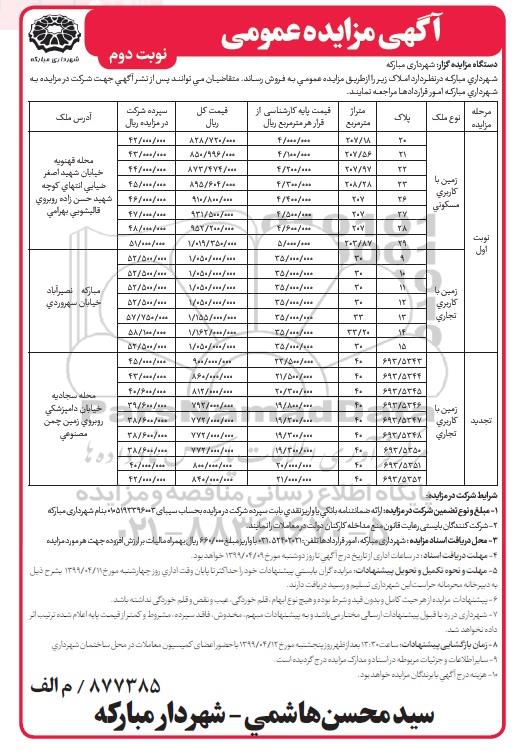 آگهی مزایده عمومی
نوبت دوم
شهرداری مبارکه
دستگاه مزایده گزار: شهرداری مبارکه
شهرداري مبارکه در نظر دارد املاک زیر را از طریق مزایده عمومی به فروش رساند. متقاضیان می توانند پس از نشر آگهي جهت شرکت در مزایده به
شهرداري مبارکه امور قراردادها مراجعه نمایند.
مرحله مزایده | نوع ملک | پلاک | متراژ مترمربع | قیمت پایه کارشناسی از قرار هر مترمربع ریال | قیمت کل ریال | سپرده شرکت در مزایده ریال | آدرس ملک
نوبت اول | زمین با کاربري مسکوني | ۲۰ | ۲۰۷/۱۸ | ۴/۰۰۰/۰۰۰ | ۸۲۸/۷۲۰/۰۰۰ | ۴۲/۰۰۰/۰۰۰ | محله قهنویه خیابان شهید اصغر ضیایي انتهاي کوچه شهید حسن زاده روبروي قالیشویي بهرامي
۲۱ | ۲۰۷/۵۶ | ۴/۱۰۰/۰۰۰ | ۸۵۰/۹۹۶/۰۰۰ | ۴۳/۰۰۰/۰۰۰
۲۲ | ۲۰۷/۹۷ | ۴/۲۰۰/۰۰۰ | ۸۷۳/۴۷۴/۰۰۰ | ۴۴/۰۰۰/۰۰۰
۲۳ | ۲۰۸/۲۸ | ۴/۳۰۰/۰۰۰ | ۸۹۵/۶۰۴/۰۰۰ | ۴۵/۰۰۰/۰۰۰
۲۶ | ۲۰۷ | ۴/۴۰۰/۰۰۰ | ۹۱۰/۸۰۰/۰۰۰ | ۴۶/۰۰۰/۰۰۰
۲۷ | ۲۰۷ | ۴/۵۰۰/۰۰۰ | ۹۳۱/۵۰۰/۰۰۰ | ۴۷/۰۰۰/۰۰۰
۲۸ | ۲۰۷ | ۴/۶۰۰/۰۰۰ | ۹۵۲/۲۰۰/۰۰۰ | ۴۸/۰۰۰/۰۰۰
۲۹ | ۲۰۳/۸۷ | ۵/۰۰۰/۰۰۰ | ۱/۰۱۹/۳۵۰/۰۰۰ | ۵۱/۰۰۰/۰۰۰
زمین با کاربري تجاري | ۹ | ۳۰ | ۳۵/۰۰۰/۰۰۰ | ۱/۰۵۰/۰۰۰/۰۰۰ | ۵۲/۵۰۰/۰۰۰ | مبارکه نصیرآباد خیابان سهروردي
۱۰ | ۳۰ | ۳۵/۰۰۰/۰۰۰ | ۱/۰۵۰/۰۰۰/۰۰۰ | ۵۲/۵۰۰/۰۰۰
۱۱ | ۳۰ | ۳۵/۰۰۰/۰۰۰ | ۱/۰۵۰/۰۰۰/۰۰۰ | ۵۲/۵۰۰/۰۰۰
۱۲ | ۳۰ | ۳۵/۰۰۰/۰۰۰ | ۱/۰۵۰/۰۰۰/۰۰۰ | ۵۲/۵۰۰/۰۰۰
۱۳ | ۳۳ | ۳۵/۰۰۰/۰۰۰ | ۱/۱۵۵/۰۰۰/۰۰۰ | ۵۷/۷۵۰/۰۰۰
۱۴ | ۳۳/۲۰ | ۳۵/۰۰۰/۰۰۰ | ۱/۱۶۲/۰۰۰/۰۰۰ | ۵۸/۱۰۰/۰۰۰
۱۵ | ۳۰ | ۳۵/۰۰۰/۰۰۰ | ۱/۰۵۰/۰۰۰/۰۰۰ | ۵۲/۵۰۰/۰۰۰
تجدید | زمین با کاربري تجاري | ۶۹۳/۵۳۴۳ | ۴۰ | ۲۲/۵۰۰/۰۰۰ | ۹۰۰/۰۰۰/۰۰۰ | ۴۵/۰۰۰/۰۰۰ | محله سجادیه خیابان دامپزشکي روبروي زمین چمن مصنوعي
۶۹۳/۵۳۴۴ | ۴۰ | ۲۱/۵۰۰/۰۰۰ | ۸۶۰/۰۰۰/۰۰۰ | ۴۳/۰۰۰/۰۰۰
۶۹۳/۵۳۴۵ | ۴۰ | ۲۰/۳۰۰/۰۰۰ | ۸۱۲/۰۰۰/۰۰۰ | ۴۰/۶۰۰/۰۰۰
۶۹۳/۵۳۴۶ | ۴۰ | ۱۹/۸۰۰/۰۰۰ | ۷۹۲/۰۰۰/۰۰۰ | ۳۹/۶۰۰/۰۰۰
۶۹۳/۵۳۴۷ | ۴۰ | ۱۹/۳۰۰/۰۰۰ | ۷۷۲/۰۰۰/۰۰۰ | ۳۸/۶۰۰/۰۰۰
۶۹۳/۵۳۴۸ | ۴۰ | ۱۹/۳۰۰/۰۰۰ | ۷۷۲/۰۰۰/۰۰۰ | ۳۸/۶۰۰/۰۰۰
۶۹۳/۵۳۵۰ | ۴۰ | ۱۹/۳۰۰/۰۰۰ | ۷۷۲/۰۰۰/۰۰۰ | ۳۸/۶۰۰/۰۰۰
۶۹۳/۵۳۵۱ | ۴۰ | ۲۰/۰۰۰/۰۰۰ | ۸۰۰/۰۰۰/۰۰۰ | ۴۰/۰۰۰/۰۰۰
۶۹۳/۵۳۵۲ | ۴۰ | ۲۱/۰۰۰/۰۰۰ | ۸۴۰/۰۰۰/۰۰۰ | ۴۲/۰۰۰/۰۰۰
شرایط شرکت در مزایده:
۱- مبلغ و نوع تضمین شرکت در مزایده: ارائه ضمانتنامه بانکي یا واریز نقدي بابت سپرده شرکت در مزایده بحساب سیبای ۰۱۰۵۱۹۲۳۹۶۰۰۳ بنام شهرداری مبارکه
۲- شرکت کنندگان بایستی رعایت قانون منع مداخله کارکنان دولت در معاملات را نمایند.
۳- محل دریافت اسناد مزایده: شهرداری مبارکه، امور قراردادها تلفن: ۵۲۴۰۲۰۲۱-۰۳۱ با واریز مبلغ ۶۶۰/۰۰۰ ریال بهمراه مالیات بر ارزش افزوده جهت هر مورد مزایده
۴- مهلت دریافت اسناد: در ساعات اداری از تاریخ درج آگهی تا روز دوشنبه مورخ ۱۳۹۹/۰۴/۰۹ خواهد بود.
۵- مهلت و نحوه تکمیل و تحویل پیشنهادات: مزایده گران بایستی پیشنهادات خود را حداکثر تا پایان وقت اداري روز چهارشنبه مورخ ۱۳۹۹/۰۴/۱۱ بشرح ذیل
به دبیرخانه محرمانه حراست این شهرداری تسلیم و رسید دریافت دارند.
۶- پیشنهادات مزایده از هر حیث کامل و بدون قید و شرط بوده و هیچ نوع ابهام، قلم خوردگی، عیب و نقص و قلم خوردگی نداشته باشد.
۷- شهرداری در رد یا قبول پیشنهادات ارسالی مختار می باشد و به پیشنهادات مبهم، مخدوش، فاقد سپرده، مشروط و کمتر از قیمت پایه اعلام شده ترتیب اثر
داده نخواهد شد.
۸- زمان بازگشایی پیشنهادات: ساعت ۱۳:۳۰ بعد از ظهر روز پنجشنبه مورخ ۱۳۹۹/۰۴/۱۲ با حضور اعضای کمیسیون معاملات در محل ساختمان شهرداري
۹- سایر اطلاعات و جزئیات مربوطه در اسناد و مدارک مزایده درج گردیده است.
۱۰- هزینه درج آگهی با برندگان مزایده خواهد بود.
۸۷۷۳۸۵ / م الف
سید محسن هاشمي - شهردار مبارکه